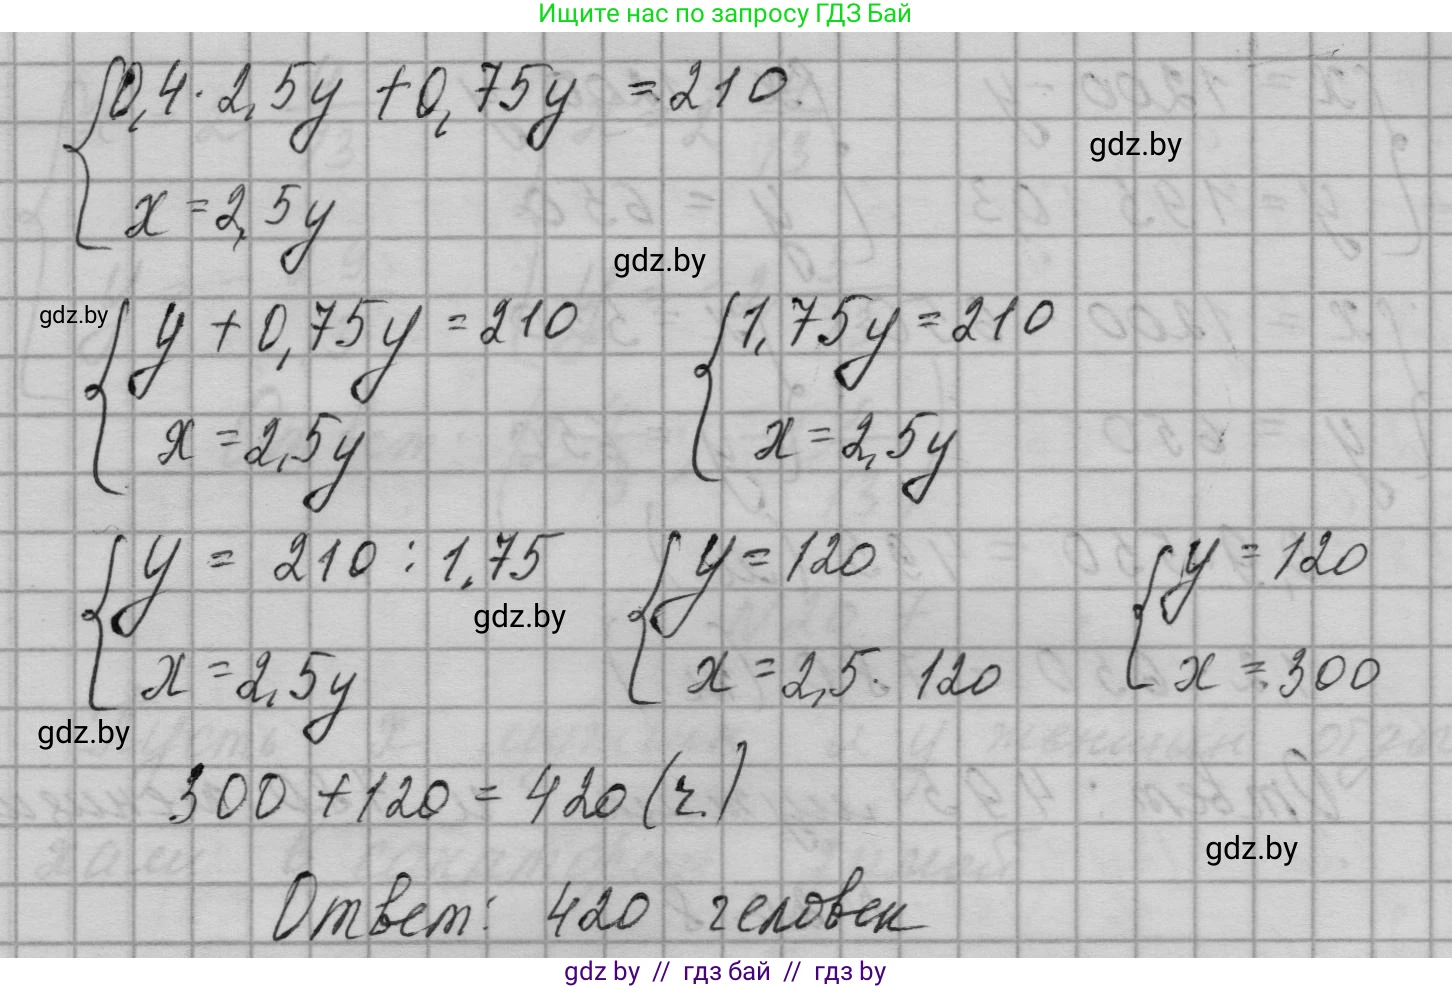 Ищите нас по запросу ГДЗ Бай
0,4 · 2,5y + 0,75y = 210
gdz.by
x = 2,5y
gdz.by
gdz.by
y + 0,75y = 210 1,75y = 210
x = 2,5y x = 2,5y
y = 210 : 1,75 y = 120 y = 120
gdz.by
x = 2,5y x = 2,5 · 120 x = 300
gdz.by
300 + 120 = 420 (ч.)
gdz.by
Ответ: 420 человек
gdz by // гдз бай // гдз by